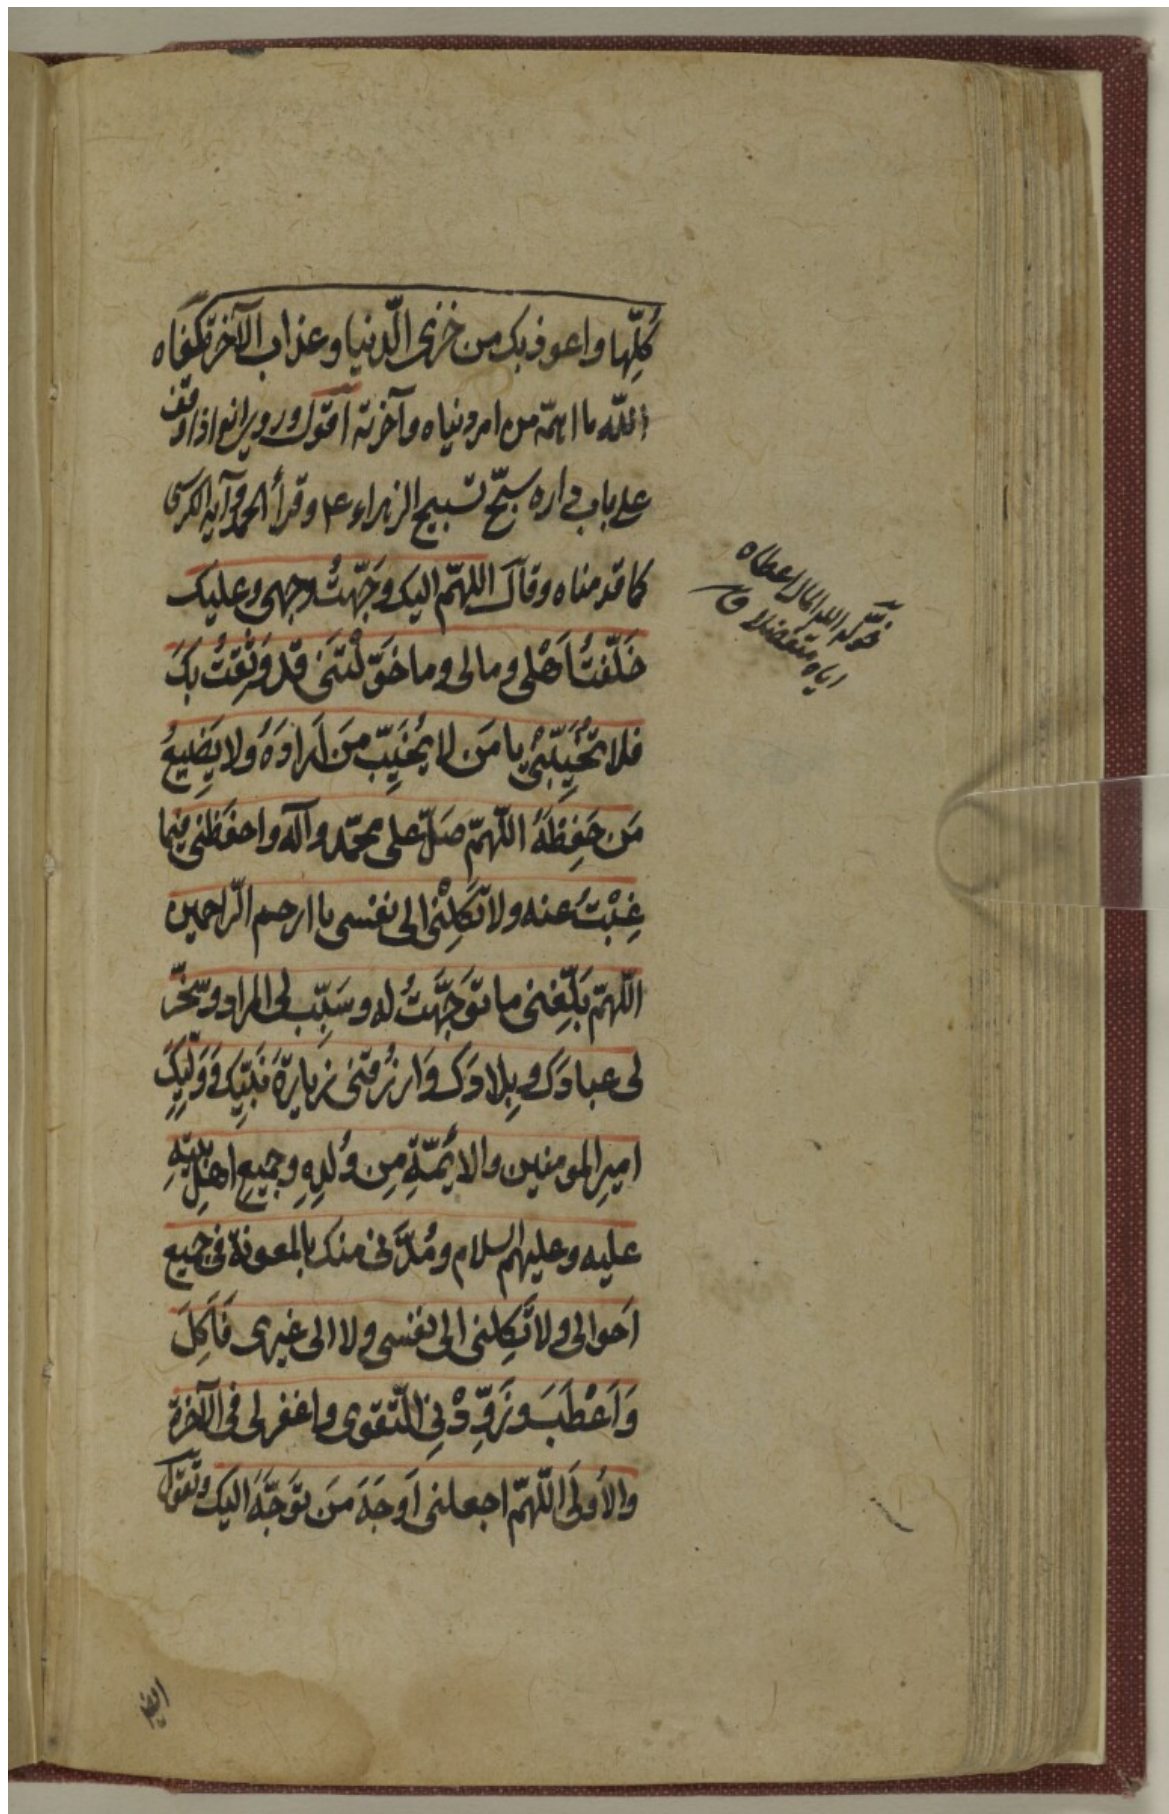 كُلِّها واعوذ بك من خزى الدّنيا وعذاب الآخرة كفاه
اللّه ما اهمّه من امر دنياه وآخرته اقول وروى انه اذا وقف
على باب داره سبّح تسبيح الزهراء ع وقرأ الحمد وآية الكرسى
كما قدمناه وقال اللهمّ اليك وَجّهتُ وجهى وعليك
خَلّفتُ اَهْلى ومالى وما خَوّلْتَنى قد وَثِقتُ بكَ
فلا تُخَيِّبْنى يا مَن لا يُخَيِّب مَن اَرادَهُ ولا يُضيعُ
مَن حَفِظَهُ اللّهمّ صَلّ على محمّد وآله واحفَظنى فيما
غِبْتُ عنه ولا تَكِلْنى الى نفسى يا ارحم الرّاحمين
اللّهمّ بَلِّغنى ما توَجَّهَتُ له وسَبِّب لى المراد وسخّر
لى عبادَكَ وبِلادَكَ وَارزُقنى زيارَةَ نَبيِّكَ وَوَليِّكَ
اميرِ المومنين والائمّةِ مِن وُلدِهِ وجميعِ اهلِ بَيتِهِ
عليه وعليهم السلام ومُدَّنى منك بالمعونة فى جميع
اَحوالى ولا تَكِلنى الى نفسى ولا الى غيرى فَاَكِلَّ
وَاَعْطَبَ وزَوِّدْنِى التّقوى واغفر لى فى الآخرة
والاُولَى اللّهمّ اجعلنى اَوجَهَ مَن توَجَّهَ اليك وتقول
خوّله اللّه المال اعطاه
اياه متفضلا ق
ايضا